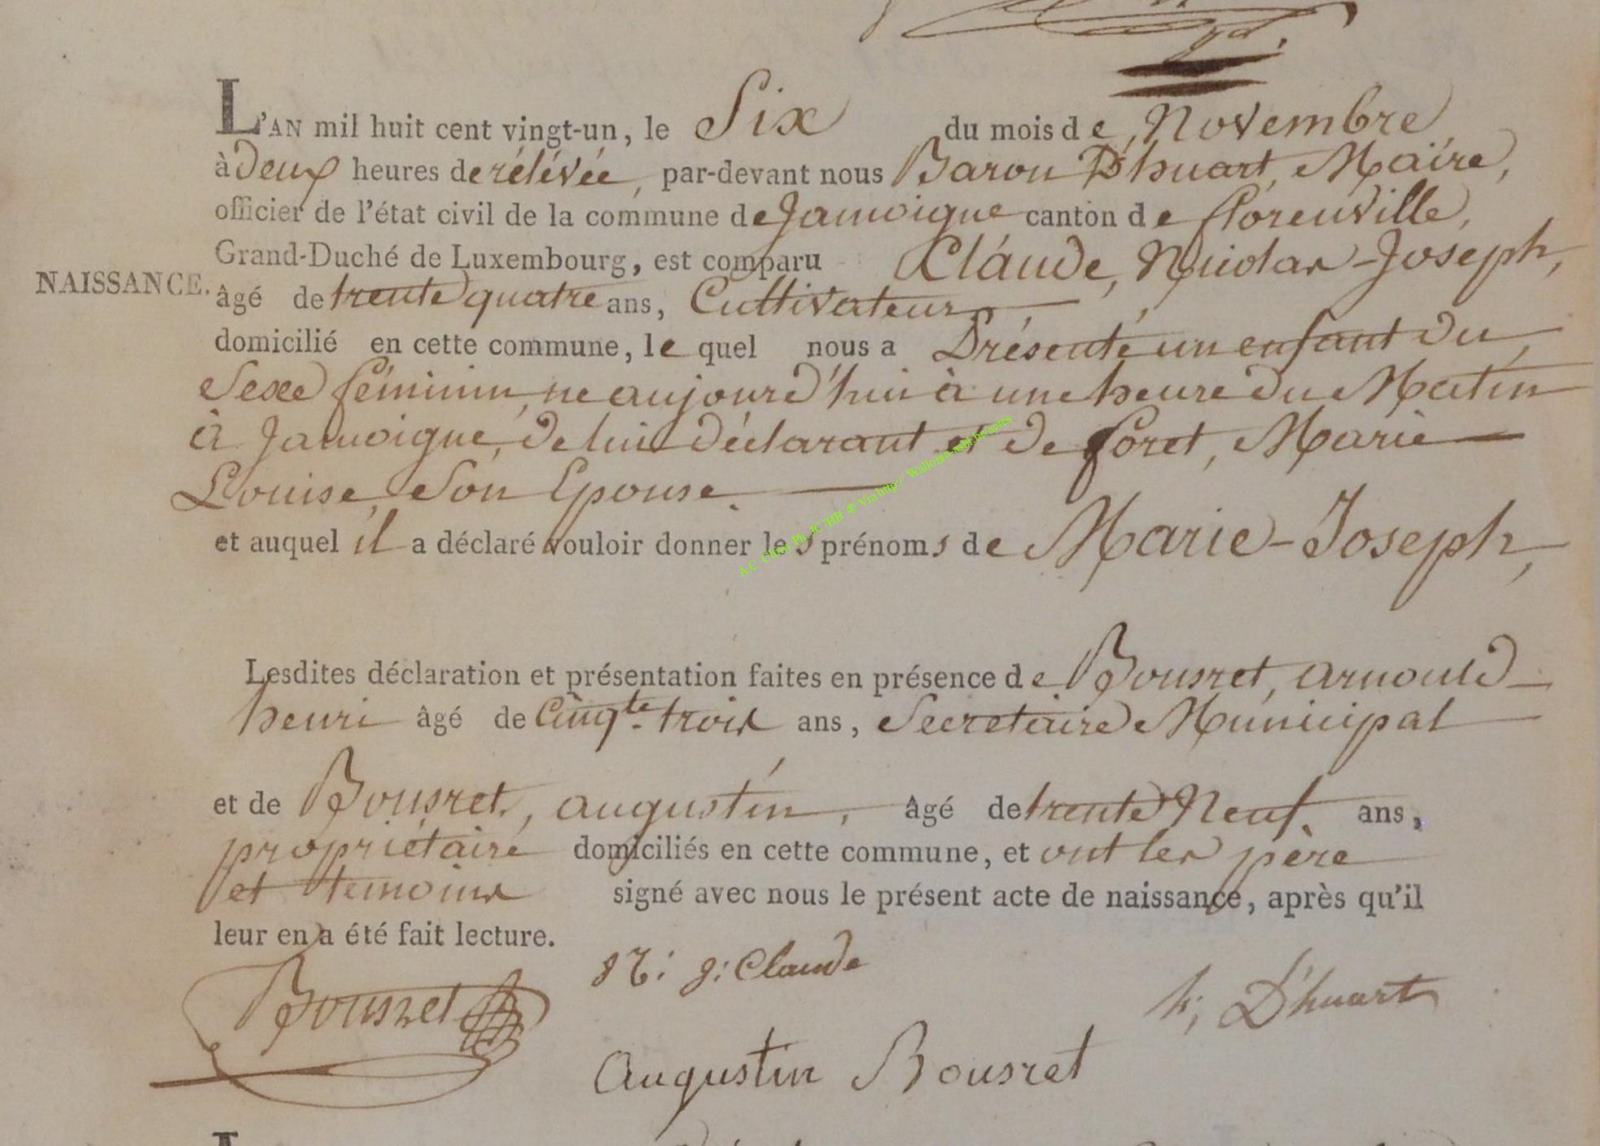 L'AN mil huit cent vingt-un, le Six du mois de Novembre
à deux heures de rélévée, par-devant nous Baron D'huart, Maire,
officier de l'état civil de la commune de Jamoigne canton de florenville,
Grand-Duché de Luxembourg, est comparu Claude, Nicolas-Joseph,
NAISSANCE. âgé de trente quatre ans, Cultivateur,
domicilié en cette commune, le quel nous a Présenté un enfant du
Sexe féminin, né aujourd'hui à une heure du Matin
à Jamoigne, de lui déclarant et de foret, Marie
Louise, Son Epouse.
et auquel il a déclaré vouloir donner les prénoms de Marie-Joseph,
Lesdites déclaration et présentation faites en présence de Bousret, arnould
henri âgé de Cinqte. trois ans, Secretaire Municipal
et de Bousret, augustin, âgé de trente Neuf. ans,
propriétaire domiciliés en cette commune, et ont les père
et témoins signé avec nous le présent acte de naissance, après qu'il
leur en a été fait lecture.
N: j: Claude
Bousret
h; D'huart
Augustin Bousret